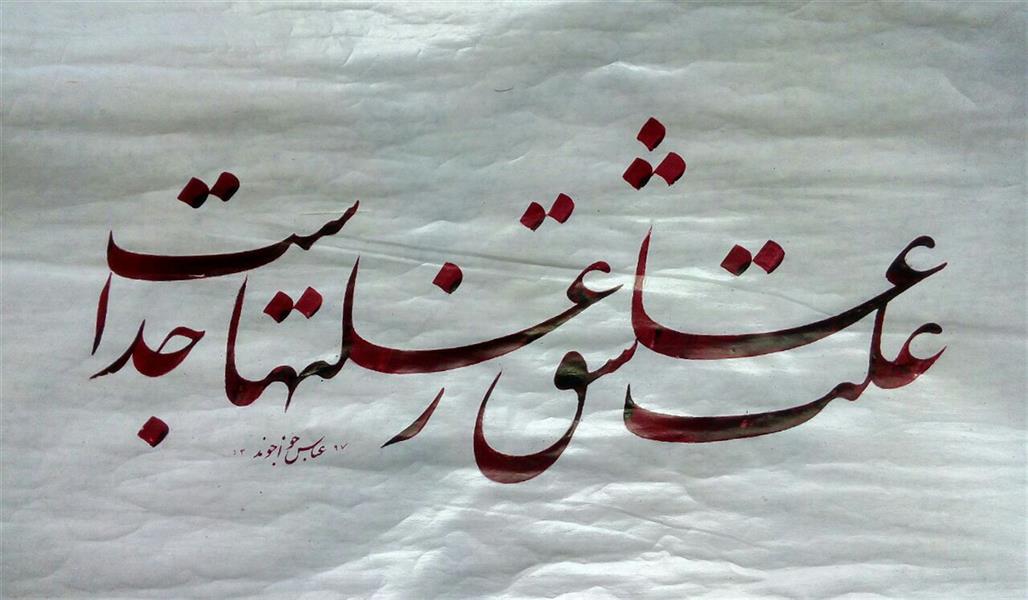 علت عاشق ز علتها جداست
عباس اخوند ۱۳۹۷